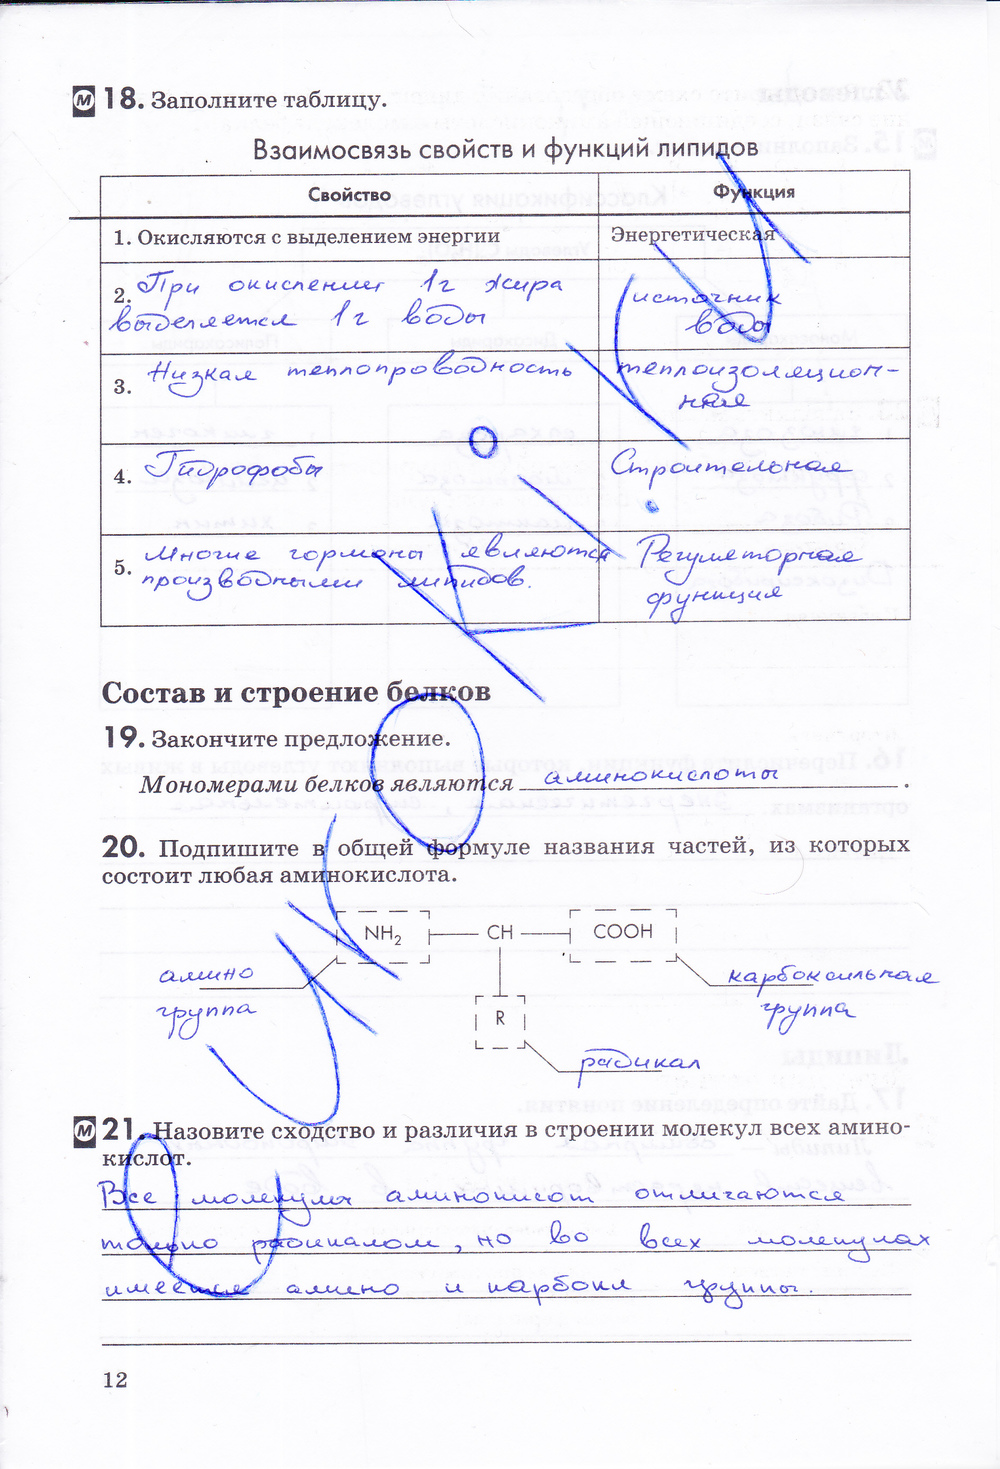 М 18. Заполните таблицу.
Взаимосвязь свойств и функций липидов
Свойство Функция
1. Окисляются с выделением энергии Энергетическая
2. При окислении 1г жира источник
выделяется 1г воды воды
3. Низкая теплопроводность теплоизоляцион-
ная
4. Гидрофобы Строительная
5. Многие гормоны являются Регуляторная
производными липидов. функция
Состав и строение белков
19. Закончите предложение.
Мономерами белков являются аминокислоты.
20. Подпишите в общей формуле названия частей, из которых
состоит любая аминокислота.
NH2 CH COOH
амино карбоксильная
группа группа
R
радикал
М 21. Назовите сходство и различия в строении молекул всех амино-
кислот.
Все молекулы аминокислот отличаются
только радикалом, но во всех молекулах
имеется амино и карбокл группы.
12